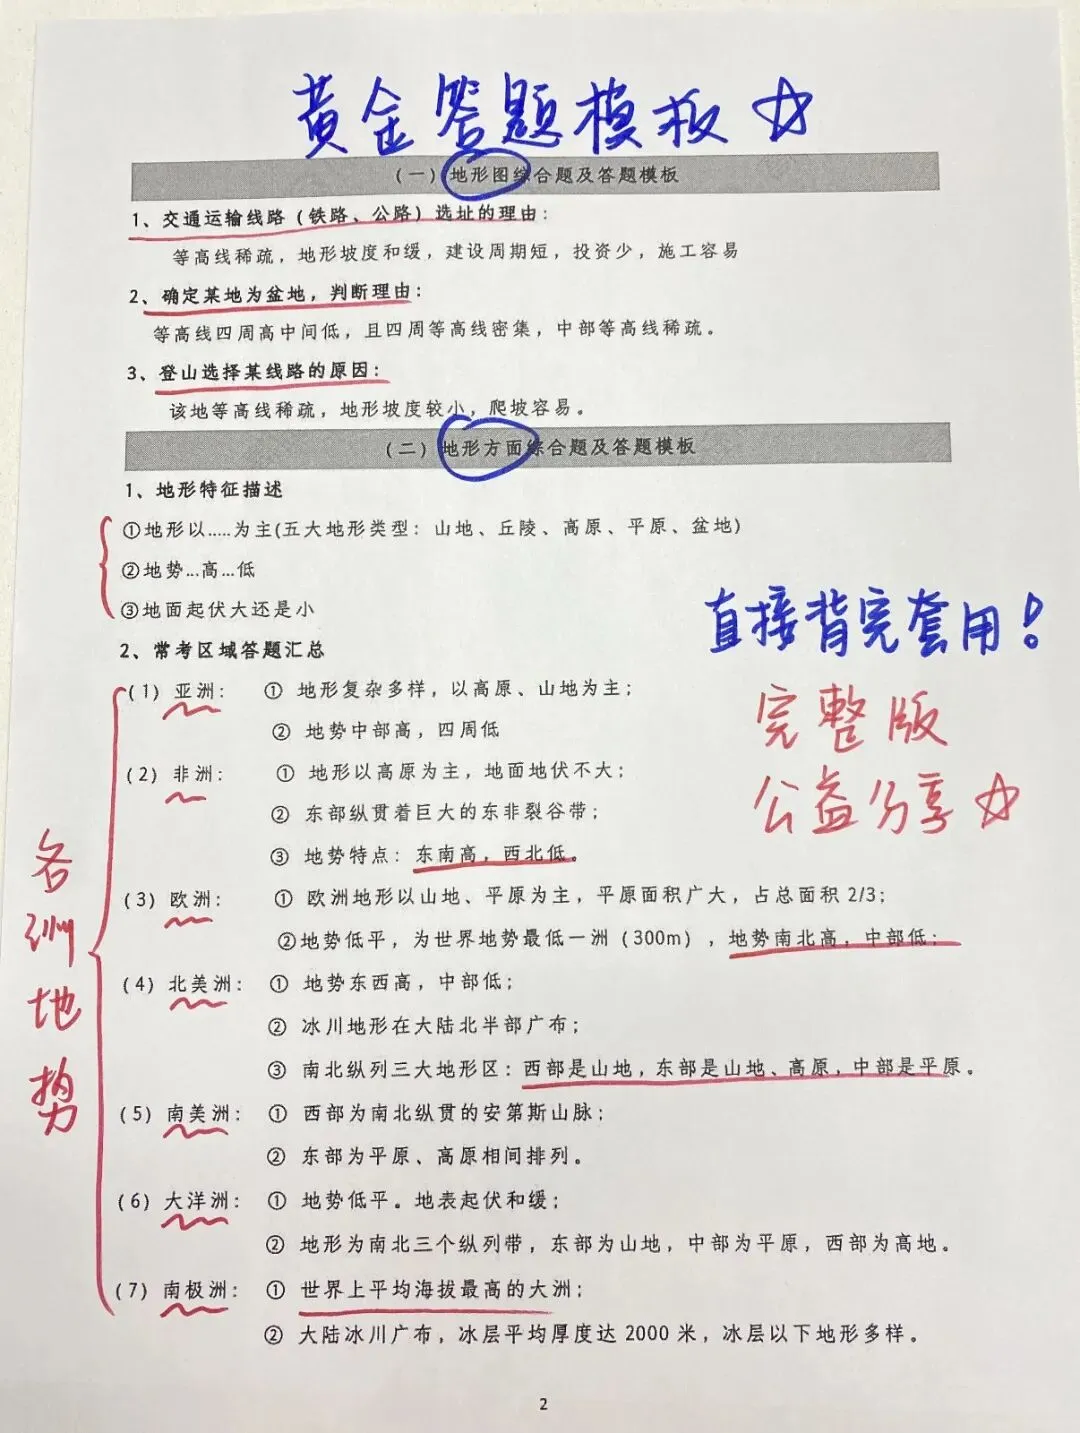 黄金答题模板☆
(一) 地形图综合题及答题模板
1、交通运输线路(铁路、公路)选址的理由：
等高线稀疏，地形坡度和缓，建设周期短，投资少，施工容易
2、确定某地为盆地，判断理由：
等高线四周高中间低，且四周等高线密集，中部等高线稀疏。
3、登山选择某线路的原因：
该地等高线稀疏，地形坡度较小，爬坡容易。
(二) 地形方面综合题及答题模板
1、地形特征描述
①地形以.....为主(五大地形类型：山地、丘陵、高原、平原、盆地)
②地势...高...低
③地面起伏大还是小
直接背完套用！
2、常考区域答题汇总
完整版
公益分享☆
各洲地势
(1) 亚洲： ① 地形复杂多样，以高原、山地为主；
② 地势中部高，四周低
(2) 非洲： ① 地形以高原为主，地面地伏不大；
② 东部纵贯着巨大的东非裂谷带；
③ 地势特点：东南高，西北低。
(3) 欧洲： ① 欧洲地形以山地、平原为主，平原面积广大，占总面积 2/3；
②地势低平，为世界地势最低一洲（300m），地势南北高，中部低；
(4) 北美洲： ① 地势东西高，中部低；
② 冰川地形在大陆北半部广布；
③ 南北纵列三大地形区：西部是山地，东部是山地、高原，中部是平原。
(5) 南美洲： ① 西部为南北纵贯的安第斯山脉；
② 东部为平原、高原相间排列。
(6) 大洋洲： ① 地势低平。地表起伏和缓；
② 地形为南北三个纵列带，东部为山地，中部为平原，西部为高地。
(7) 南极洲： ① 世界上平均海拔最高的大洲；
② 大陆冰川广布，冰层平均厚度达 2000 米，冰层以下地形多样。
2